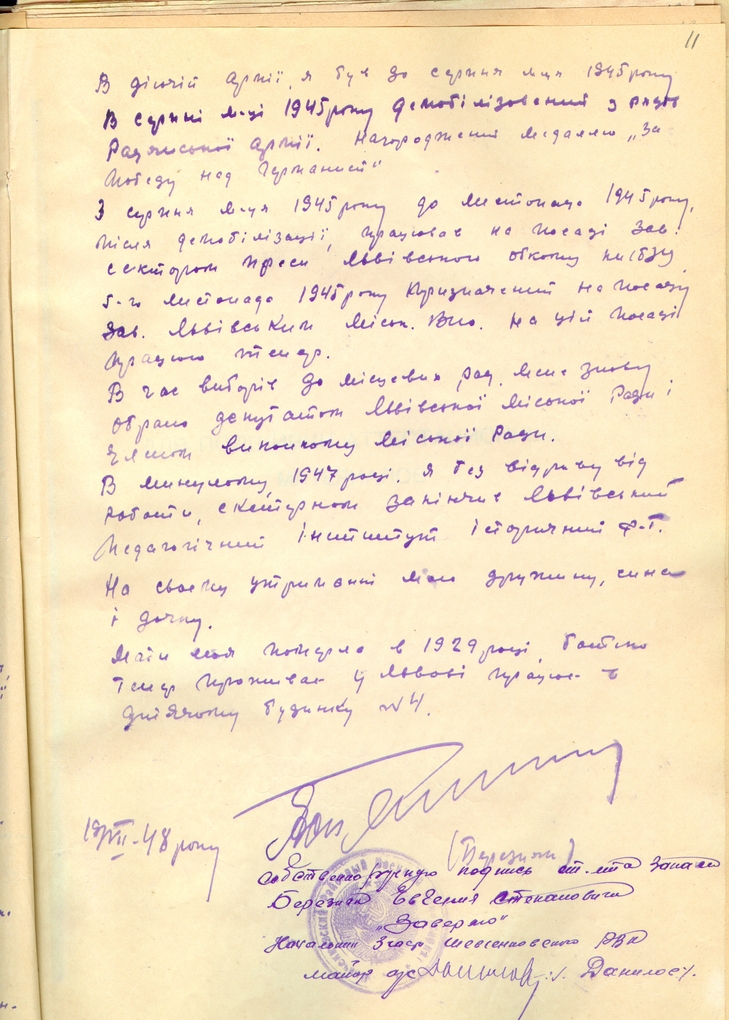 11
В діючій армії, я був до серпня м-ця 1945 року
В серпні м-ці 1945 року демобілізований з рядів
Радянської армії. Нагороджений медаллю „За
победу над Германией“
З серпня м-ця 1945 року до листопада 1945 року,
після демобілізації, працював на посаді зав.
сектором преси Львівського обкому КП(б)У
5-го листопада 1945 року призначений на посаду
зав. Львівським міськ. Вно. На цій посаді
працюю тепер.
В час виборів до місцевих рад, мене знову
обрано депутатом Львівської міської Ради і
членом виконкому міської Ради.
В минулому, 1947 році. я без відриву від
роботи, екстерном закінчив Львівський
Педагогічний інститут історичний ф-т.
На своєму утриманні маю дружину, сина
і дочку.
Мати моя померла в 1929 році, батько
тепер проживає у Львові працює в
дитячому будинку №4.
19/VII-48 року
(Березняк)
собственноручную подпись ст. л-та запаса
Березняк Евгения Степановича
„Заверяю“
Начальник 3 части Шевченковского РВК
майор а/с Данилов.